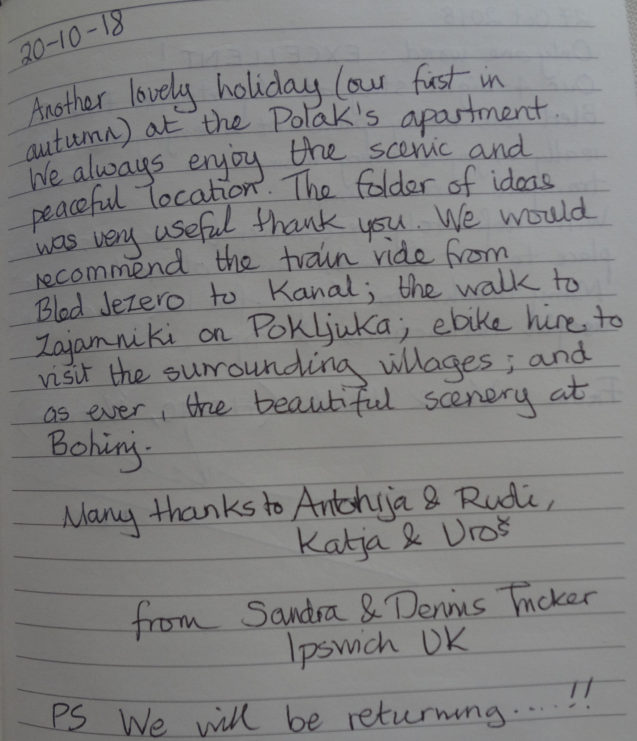 20-10-18
Another lovely holiday (our first in
autumn) at the Polak's apartment.
We always enjoy the scenic and
peaceful location. The folder of ideas
was very useful thank you. We would
recommend the train ride from
Bled Jezero to Kanal; the walk to
Zajamniki on Pokljuka; ebike hire to
visit the surrounding villages; and
as ever, the beautiful scenery at
Bohinj.
Many thanks to Antonija & Rudi,
Katja & Uroš
from Sandra & Dennis Tricker
Ipswich UK
PS We will be returning....!!